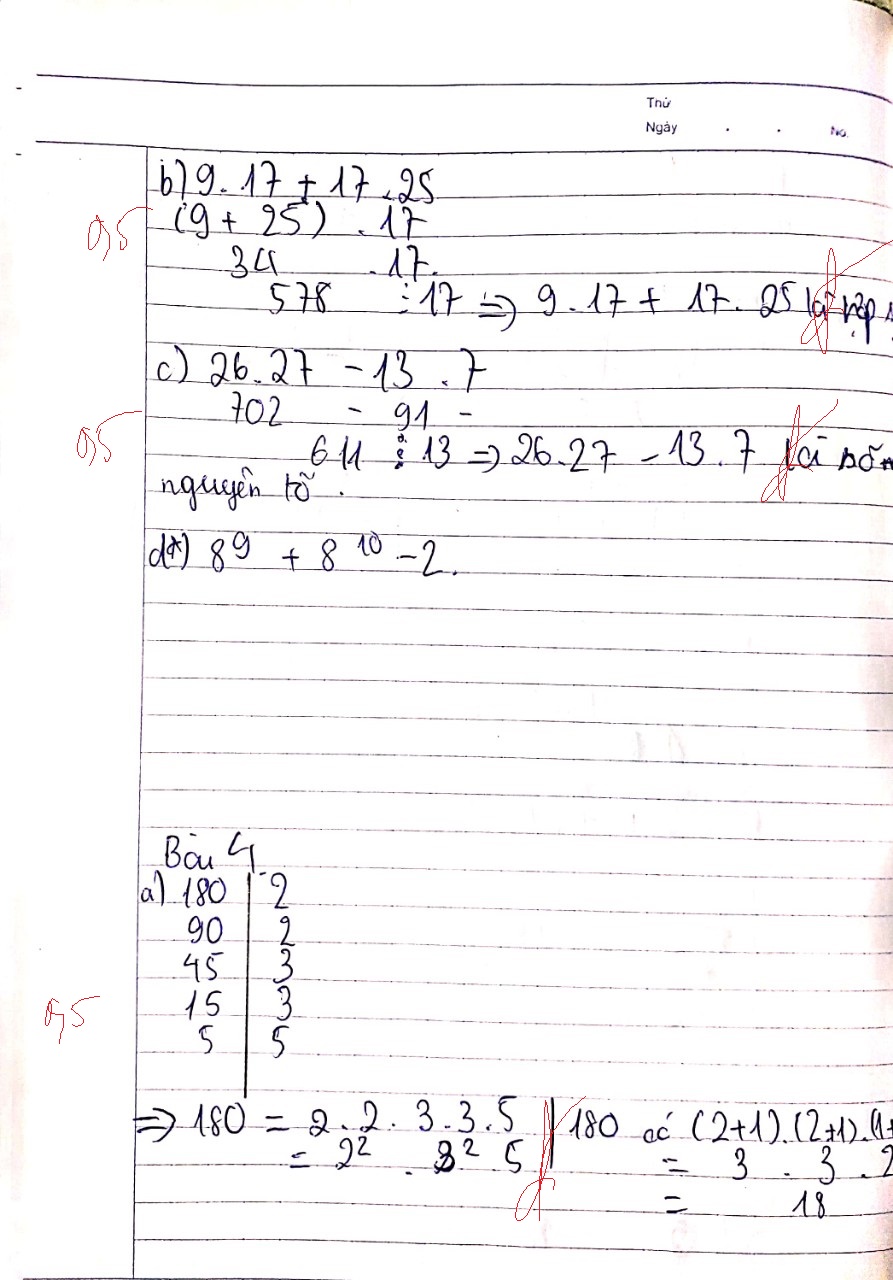 Thứ
Ngày . . No.
b) 9.17 + 17.25
0,5 (9 + 25) .17
34 .17.
578 ⋮ 17 => 9.17 + 17.25 là hợp
c) 26.27 - 13.7
702 - 91 -
0,5 611 ⋮ 13 => 26.27 - 13.7
nguyên tố.
d*) 8⁹ + 8¹⁰ - 2.
Bài 4
a) 180 | 2
90 | 2
45 | 3
0,5 15 | 3
5 | 5
=> 180 = 2.2.3.3.5 | 180 có (2+1).(2+1).(1+
= 2² . 3² . 5 | = 3 . 3 . 2
= 18